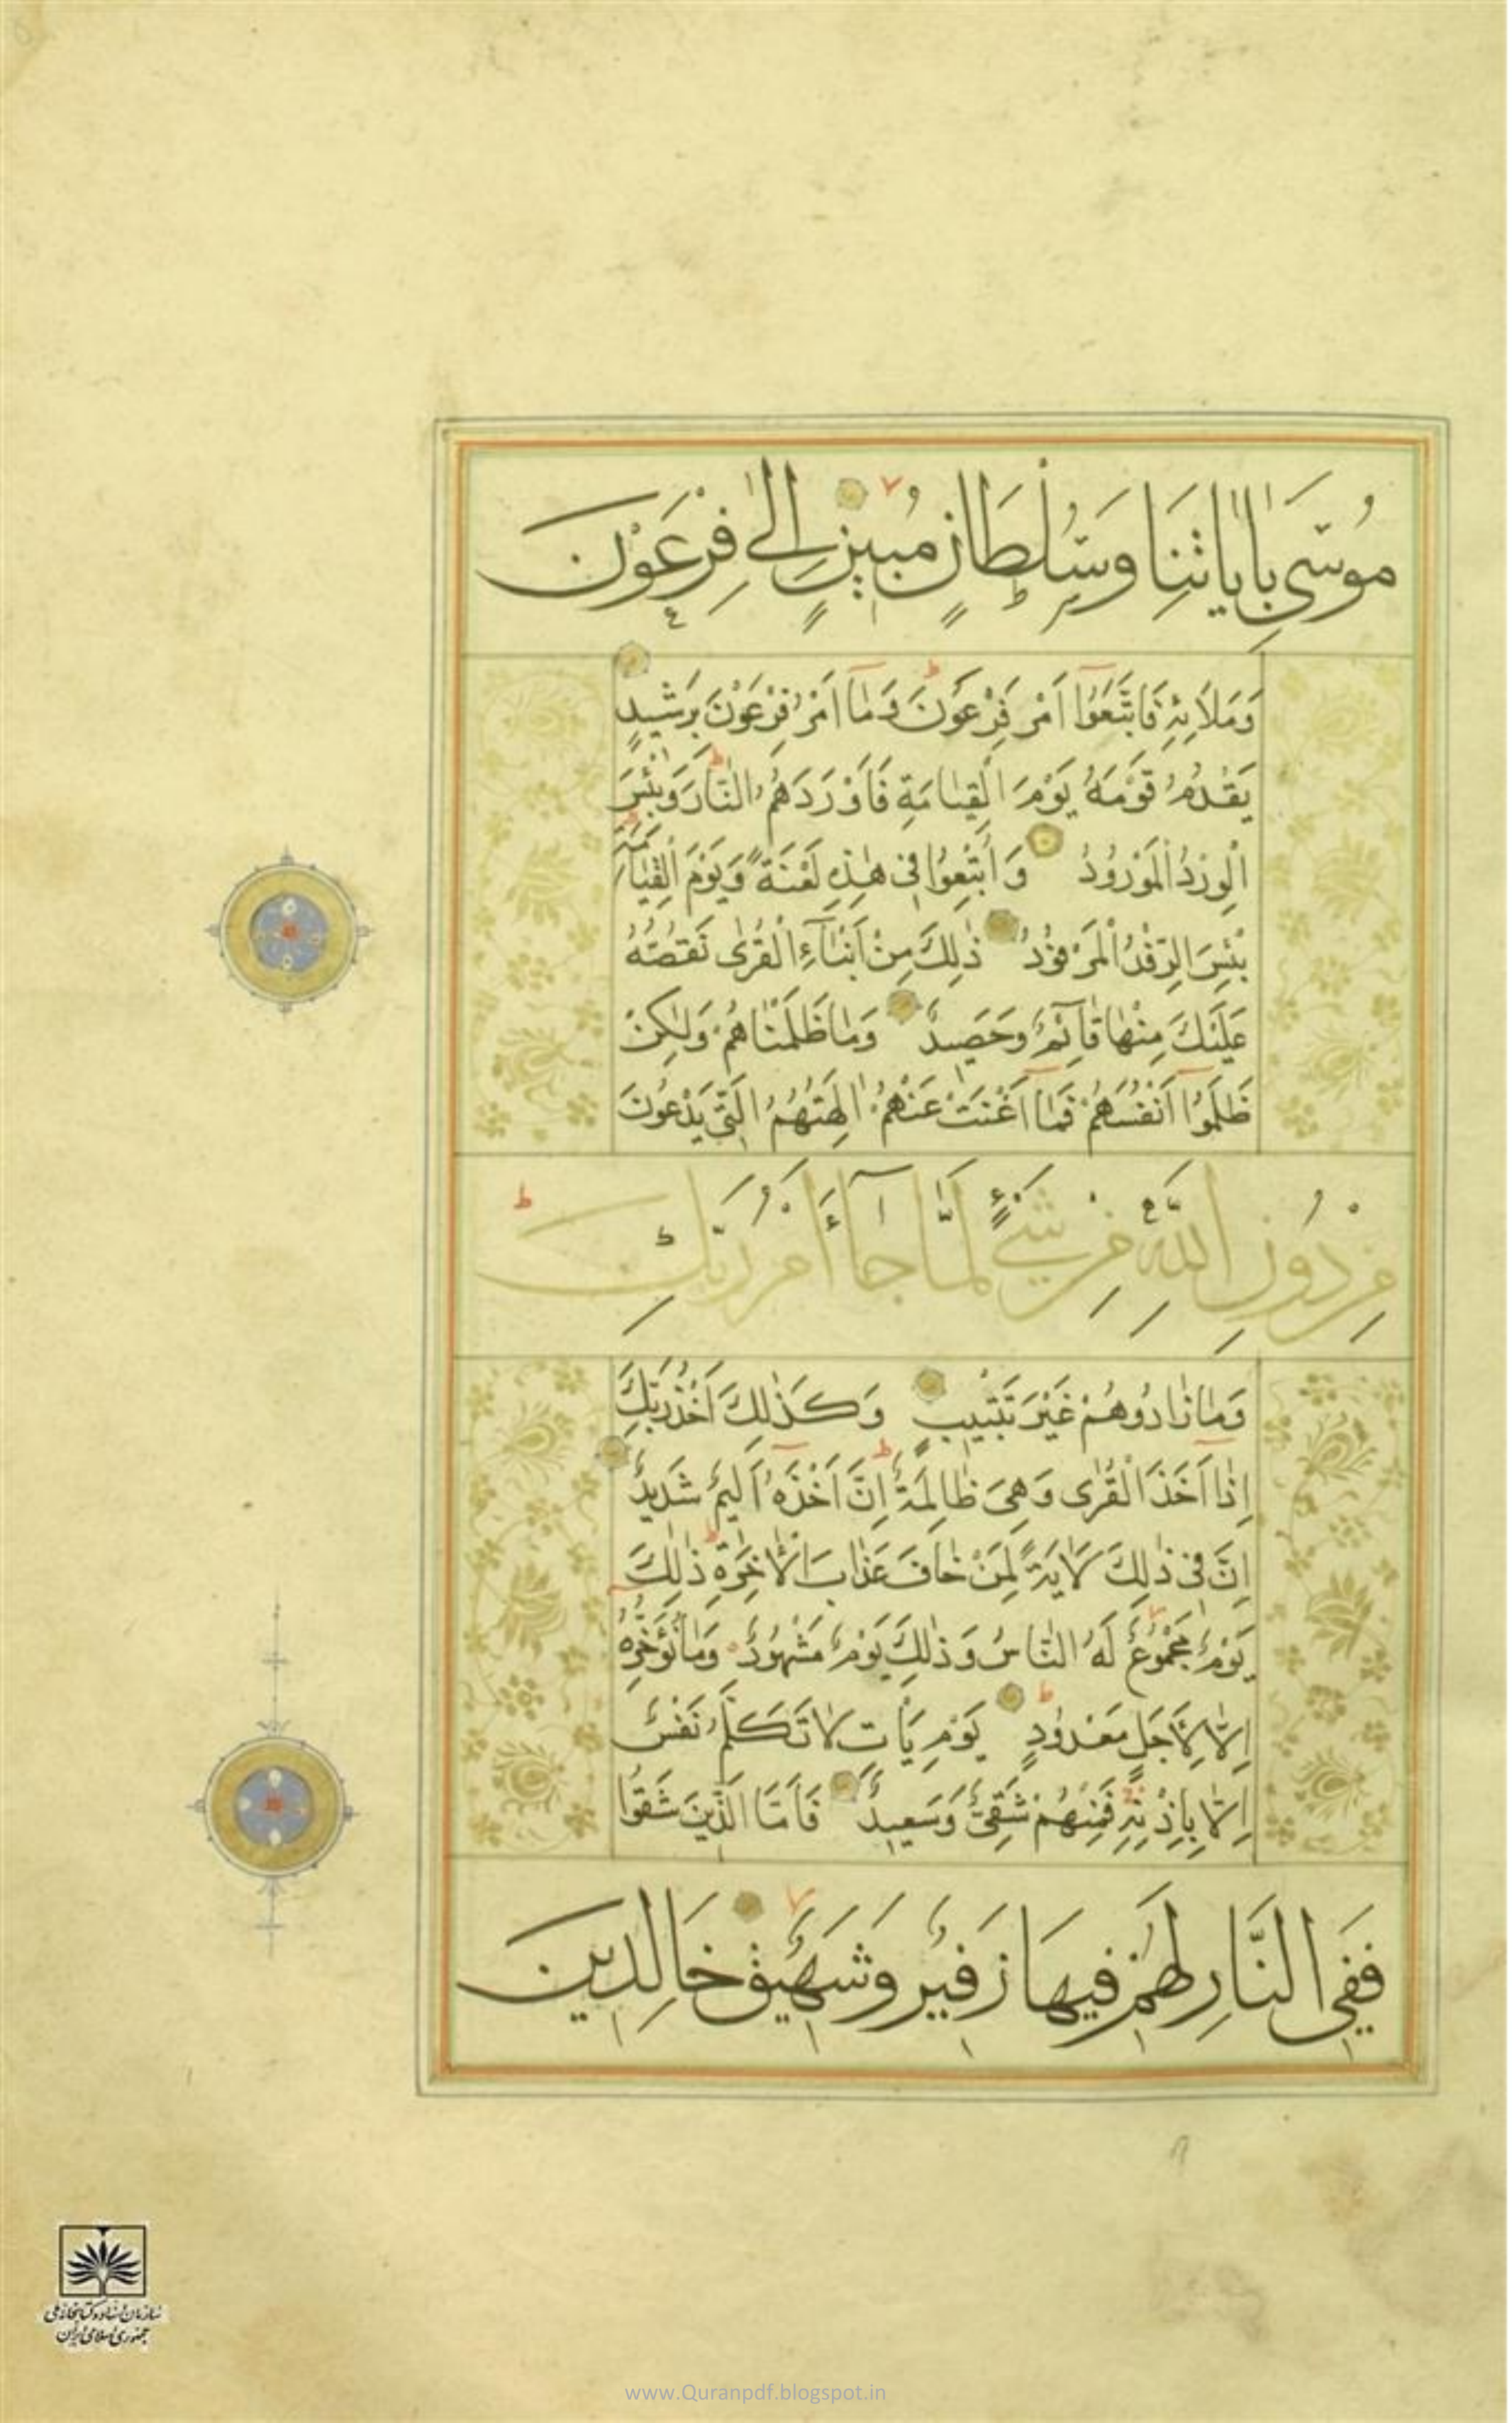 مُوسَىٰ بِاٰيَاتِنَا وَسُلْطَانٍ مُبِينٍ اِلٰى فِرْعَوْنَ
وَمَلَائِهِ فَاتَّبَعُوا اَمْرَ فِرْعَوْنَ وَمَا اَمْرُ فِرْعَوْنَ بِرَشِيدٍ
يَقْدُمُ قَوْمَهُ يَوْمَ الْقِيَامَةِ فَاَوْرَدَهُمُ النَّارَ وَبِئْسَ
الْوِرْدُ الْمَوْرُودُ وَاُتْبِعُوا فِي هٰذِهِ لَعْنَةً وَيَوْمَ الْقِيَامَةِ
بِئْسَ الرِّفْدُ الْمَرْفُودُ ذٰلِكَ مِنْ اَنْبَآءِ الْقُرٰى نَقُصُّهُ
عَلَيْكَ مِنْهَا قَآئِمٌ وَحَصِيدٌ وَمَا ظَلَمْنَاهُمْ وَلٰكِنْ
ظَلَمُوا اَنْفُسَهُمْ فَمَا اَغْنَتْ عَنْهُمْ اٰلِهَتُهُمُ الَّتِي يَدْعُونَ
مِنْ دُونِ اللَّهِ مِنْ شَيْءٍ لَمَّا جَآءَ اَمْرُ رَبِّكَ
وَمَا زَادُوهُمْ غَيْرَ تَتْبِيبٍ وَكَذٰلِكَ اَخْذُ رَبِّكَ
اِذَا اَخَذَ الْقُرٰى وَهِيَ ظَالِمَةٌ اِنَّ اَخْذَهُ اَلِيمٌ شَدِيدٌ
اِنَّ فِي ذٰلِكَ لَاٰيَةً لِمَنْ خَافَ عَذَابَ الْاٰخِرَةِ ذٰلِكَ
يَوْمٌ مَجْمُوعٌ لَهُ النَّاسُ وَذٰلِكَ يَوْمٌ مَشْهُودٌ وَمَا نُؤَخِّرُهُ
اِلَّا لِاَجَلٍ مَعْدُودٍ يَوْمَ يَاْتِ لَا تَكَلَّمُ نَفْسٌ
اِلَّا بِاِذْنِهِ فَمِنْهُمْ شَقِيٌّ وَسَعِيدٌ فَاَمَّا الَّذِينَ شَقُوا
فَفِي النَّارِ لَهُمْ فِيهَا زَفِيرٌ وَشَهِيقٌ خَالِدِينَ
سازمان اسناد و کتابخانه ملی
جمهوری اسلامی ایران
www.Quranpdf.blogspot.in